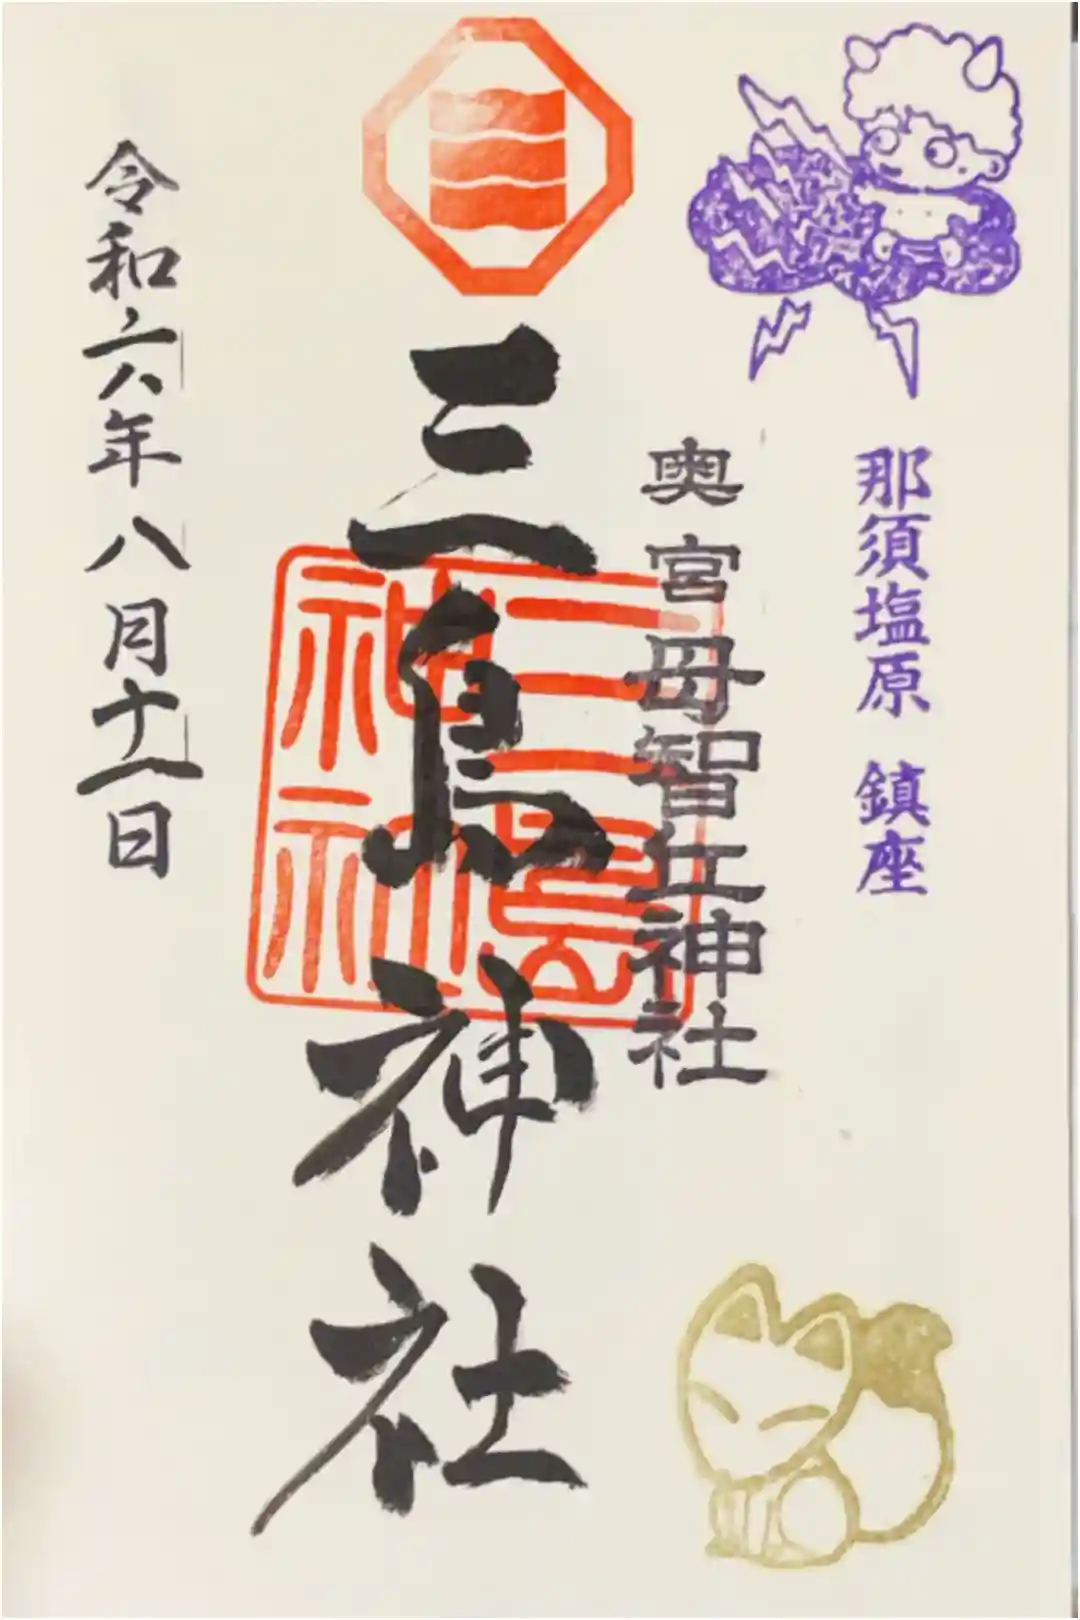 那須塩原 鎮座
奥宮母智丘神社
三島神社
三島神社
令和六年八月十一日